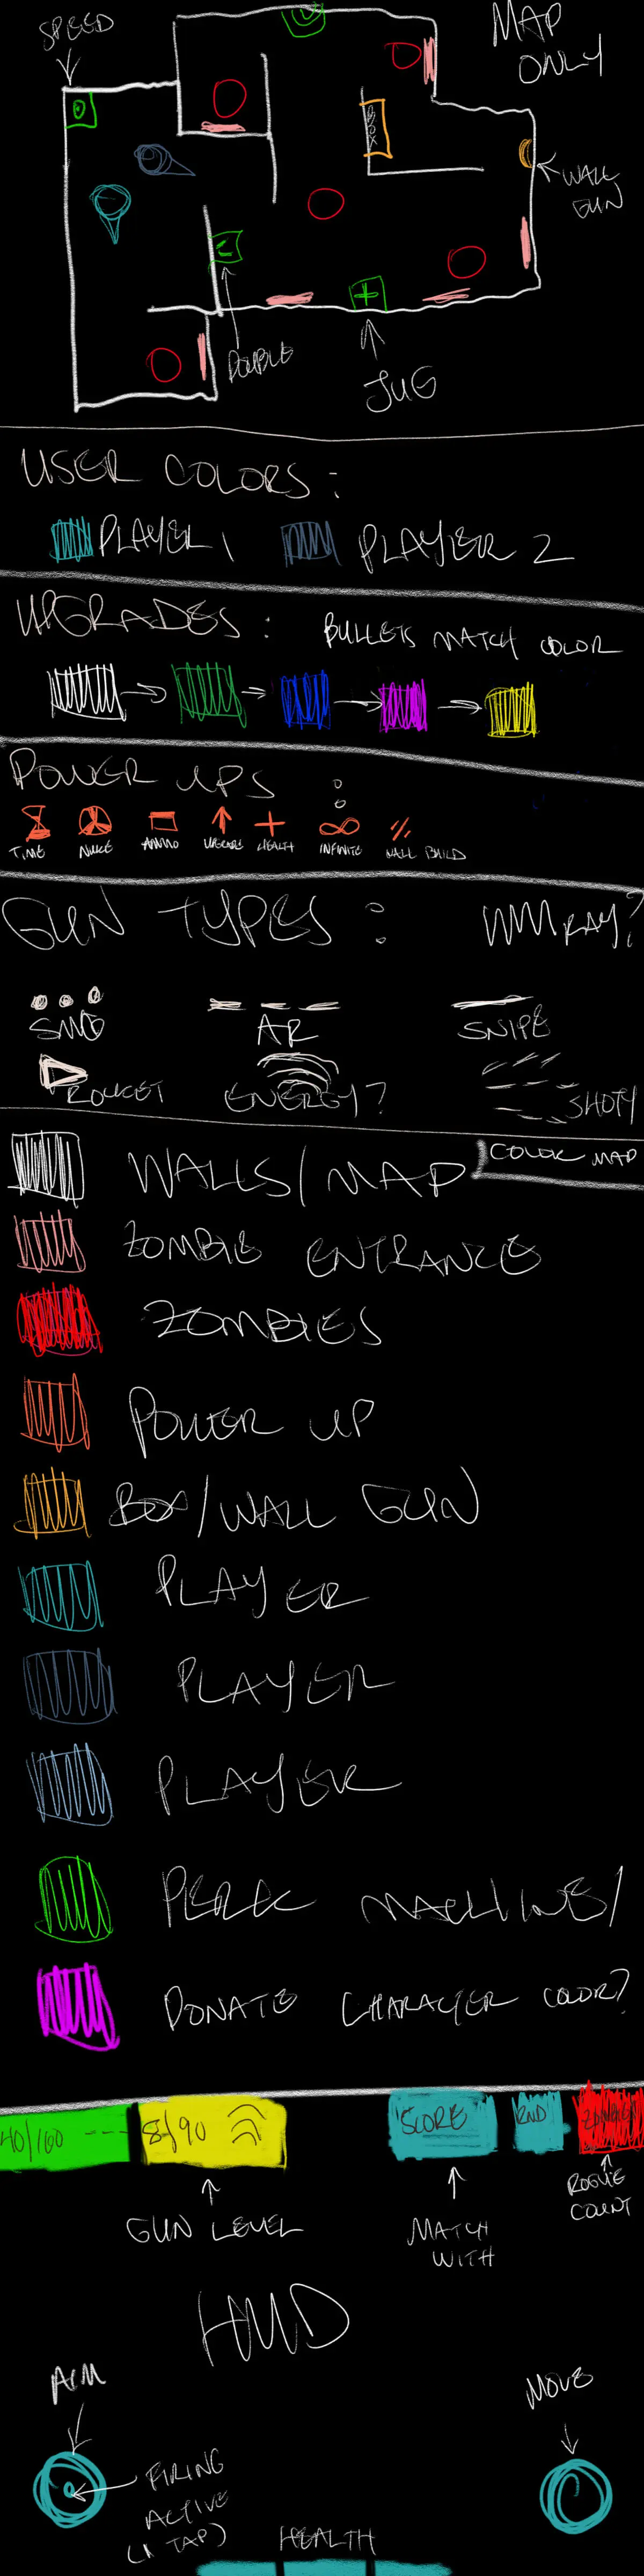 SPEED
MAP
ONLY
BOX
WALL
GUN
DOUBLE
JUG
USER COLORS:
PLAYER 1 PLAYER 2
UPGRADES: BULLETS MATCH COLOR
POWER UPS :
TIME NUKE AMMO UPGRADE HEALTH INFINITE WALL BUILD
GUN TYPES: RAY?
SMG AR SNIPE
ROCKET ENERGY? SHOTY
COLOR MAP
WALLS/MAP
ZOMBIE ENTRANCE
ZOMBIES
POWER UP
BOX/WALL GUN
PLAYER
PLAYER
PLAYER
PERK MACHINES/
DONATE CHARACTER COLOR?
40/160 --- 8/90 SCORE RND ZOMBIES
ROGUE
COUNT
GUN LEVEL MATCH
WITH
HUD
AIM MOVE
FIRING
ACTIVE
(1 TAP)
HEALTH